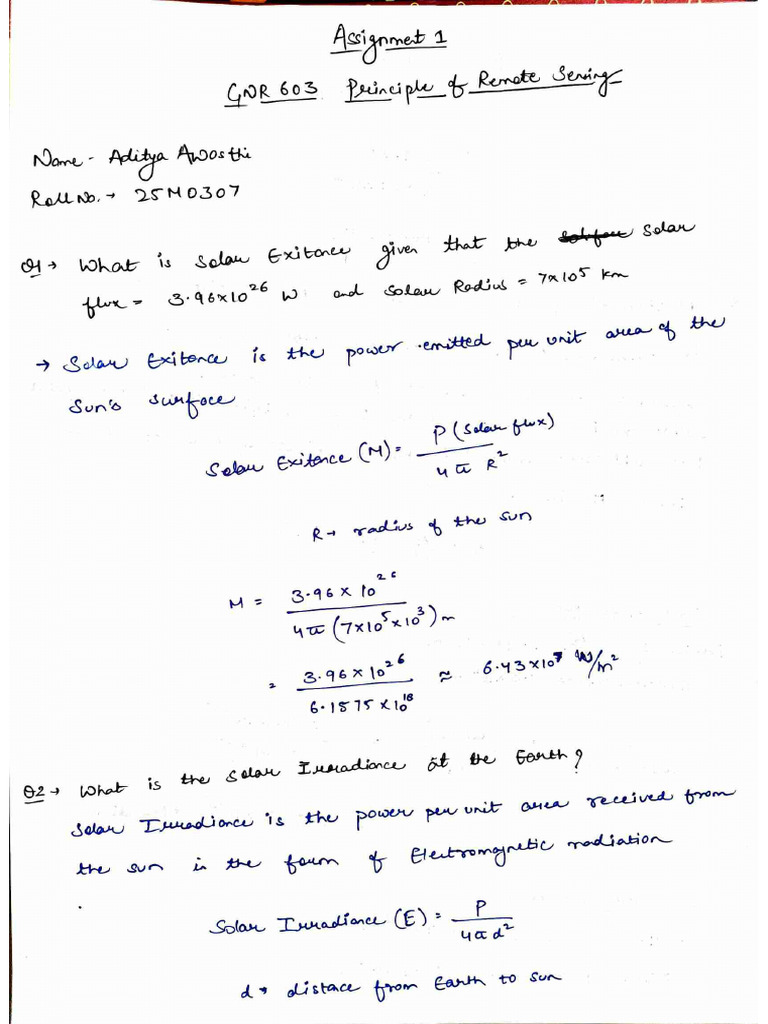 Assignment 1
GNR 603 Principle of Remote Sensing
Name - Aditya Awasthi
Roll No. → 25M0307
Q1 → What is Solar Exitance given that the Solar
flux = 3.96×10²⁶ W and Solar Radius = 7×10⁵ km
→ Solar Exitance is the power emitted per unit area of the
Sun's surface
Solar Exitance (M) = P (Solar flux) / 4π R²
R → radius of the sun
M = 3.96 × 10²⁶ / 4π (7×10⁵×10³) m
= 3.96 × 10²⁶ / 6.1575 × 10¹⁸ ≈ 6.43×10⁷ W/m²
Q2 → What is the Solar Irradiance at the Earth?
Solar Irradiance is the power per unit area received from
the sun in the form of Electromagnetic radiation
Solar Irradiance (E) = P / 4πd²
d → distance from Earth to sun